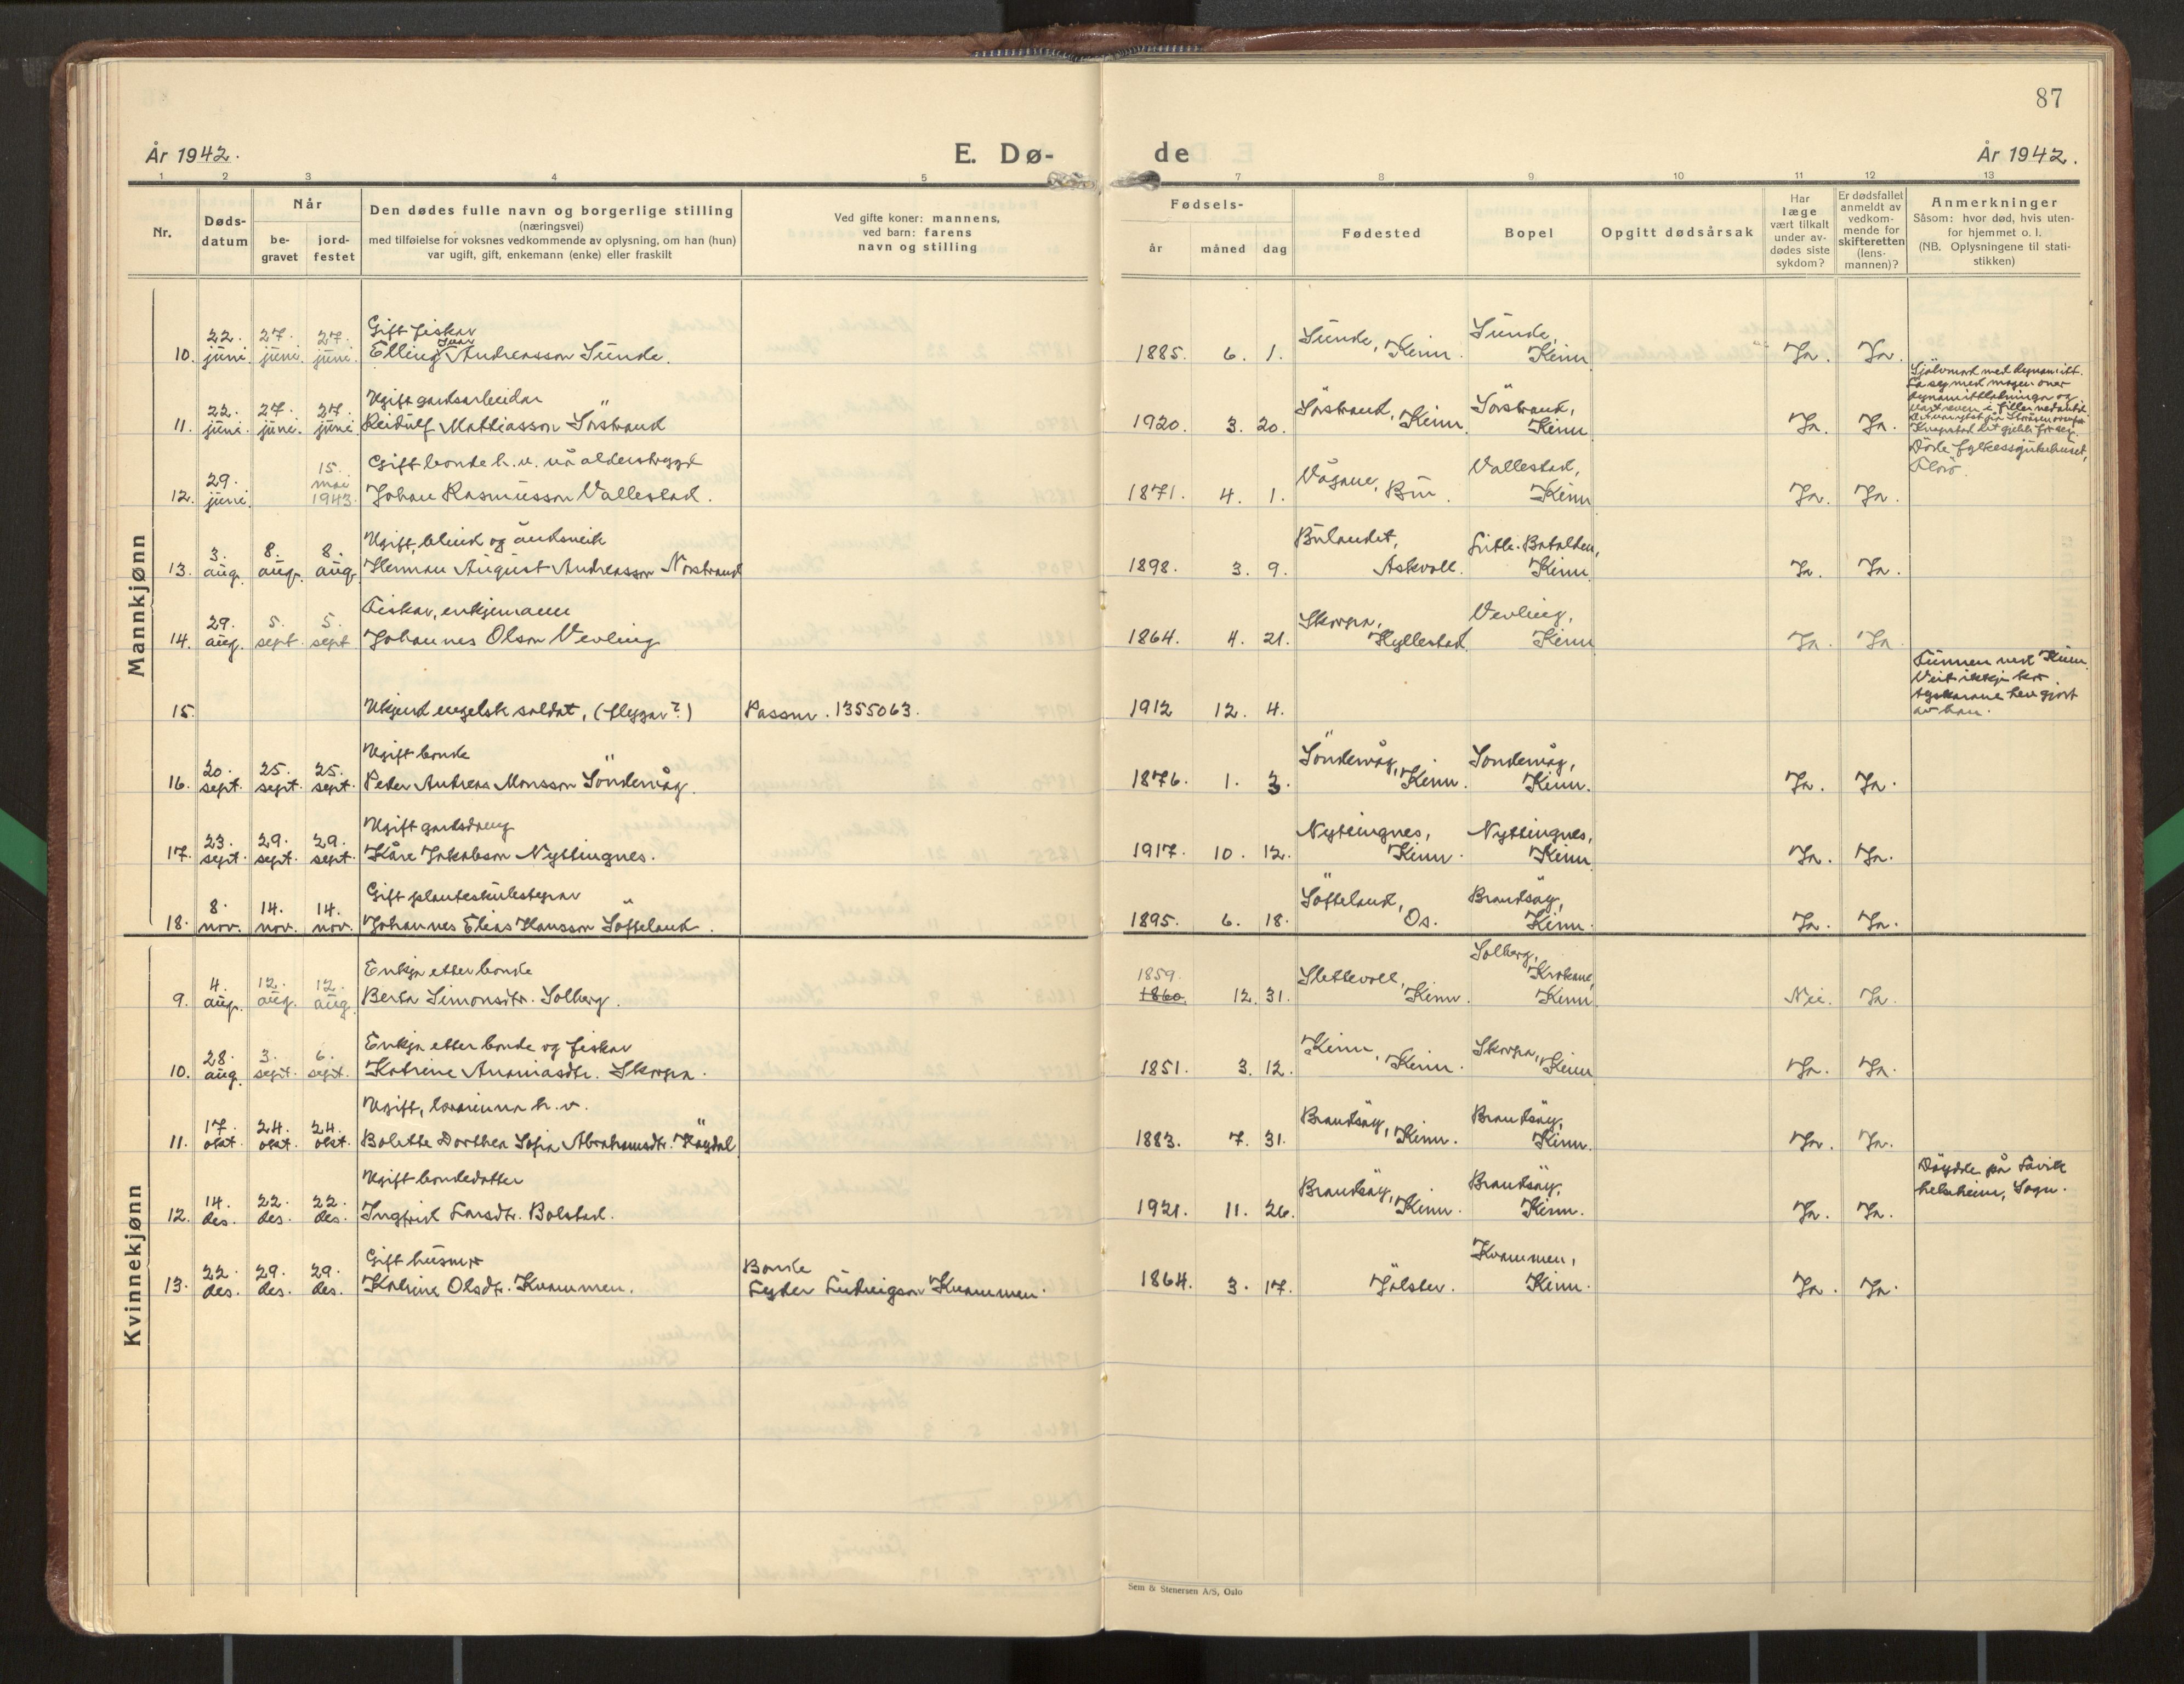 87
År 1942.
E. Dø-
de
År 1942.
1 2 3 4 5
7 8 9 10 11 12 13
Nr.
Døds-
datum
Når
be-
gravet
jord-
festet
Den dødes fulle navn og borgerlige stilling
(næringsvei)
med tilføielse for voksnes vedkommende av oplysning, om han (hun)
var ugift, gift, enkemann (enke) eller fraskilt
Ved gifte koner: mannens,
ved barn: farens
navn og stilling
Fødsels-
år måned dag
Fødested
Bopel
Opgitt dødsårsak
Har
læge
vært tilkalt
under av-
dødes siste
sykdom?
Er dødsfallet
anmeldt av
vedkom-
mende for
skifteretten
(lens-
mannen)?
Anmerkninger
Såsom: hvor død, hvis uten-
for hjemmet o. l.
(NB. Oplysningene til stati-
stikken)
Mannkjønn
22. 27. 27. Gift fiskar Sunde, Sunde,
Ivar
10. juni. juni. juni. Elling Andreasson Sunde. 1885. 6. 1. Kinn. Kinn Ja. Ja.
Sjølvmord med dynamitt.
La seg med magen over
22. 27. 27. Ugift gardsarbeidar Sörstrand, Sörstrand,
11. juni. juni. juni Reidulf Mattiasson Sörstrand 1920. 3. 20. Kinn. Kinn Ja. Ja.
29. 15. mai Gift bonde h.v. nå alderstrygd Vågane, Vallestad, Döde fylkessjukehuset,
12. juni. 1943. Johan Rasmusson Vallestad. 1871. 4. 1. Bru. Kinn Ja. Ja. Florö.
3. 8. 8. Ugift, blind og åndsveik Bulandet, Litle-Batalden,
13. aug. aug. aug. Herman August Andreasson Norstrand 1898. 3. 9. Askvoll. Kinn. Ja. Ja.
29. 5. 5. Fiskar, enkjemann Skorpa, Vevling,
14. aug. sept. sept Johannes Olson Vevling 1864. 4. 21. Hyllestad. Kinn Ja. Ja.
Funnen ved Kinn.
Veit ikkje kva
15. Ukjend engelsk soldat, (flygar?) Passnr. 1355063. 1912 12. 4. tyskarane hev gjort
av han.
20. 25. 25. Ugift bonde Söndevåg, Sondevåg,
16. sept. sept. sept. Peder Andreas Monsson Söndevåg. 1876. 1. 3. Kinn. Kinn. Ja. Ja.
23. 29. 29. Ugift gardsdreng Nyttingnes, Nyttingnes,
17. sept. sept. sept. Kåre Jakobson Nyttingnes. 1917. 10. 12. Kinn. Kinn Ja. Ja.
8. 14. 14. Gift planteskulestyrar Söfteland, Brandsöy,
18. nov. nov. nov. Johannes Elias Hansson Söfteland. 1895. 6. 18. Os. Kinn. Ja. Ja.
Kvinnekjønn
4. 12. 12. Enkja etter bonde 1859. Slettevoll, Solberg, Krokane,
9. aug. aug. aug. Berta Simonsdtr. Solberg. 1860. 12. 31. Kinn. Kinn Nei. Ja.
28. 3. 6. Enkja etter bonde og fiskar Kinn, Skorpa,
10. aug. sept. sept. Katrine Ananiasdtr. Skorpa. 1851. 3. 12. Kinn. Kinn Ja. Ja.
17. 24. 24. Ugift, h.v. Brandsöy, Brandsöy,
11. okt. okt. okt. Bolette Dorthea Sofia Abrahamsdtr. Högdal 1883. 7. 31. Kinn. Kinn. Ja. Ja.
14. 22. 22. Ugift bondedotter Brandsöy, Brandsöy, Döydde på Lavik
12. des. des. des. Ingfrid Larsdtr. Bolstad. 1921. 11. 26. Kinn. Kinn. Ja. Ja. helseheim, Sogn.
22. 29. 29. Gift husmor Bonde Kvammen,
13. des. des. des. Katrine Olsdtr. Kvammen. Lyder Ludvigson Kvammen. 1864. 3. 17. Jölster. Kinn. Ja. Ja.
Sem & Stenersen A/S, Oslo